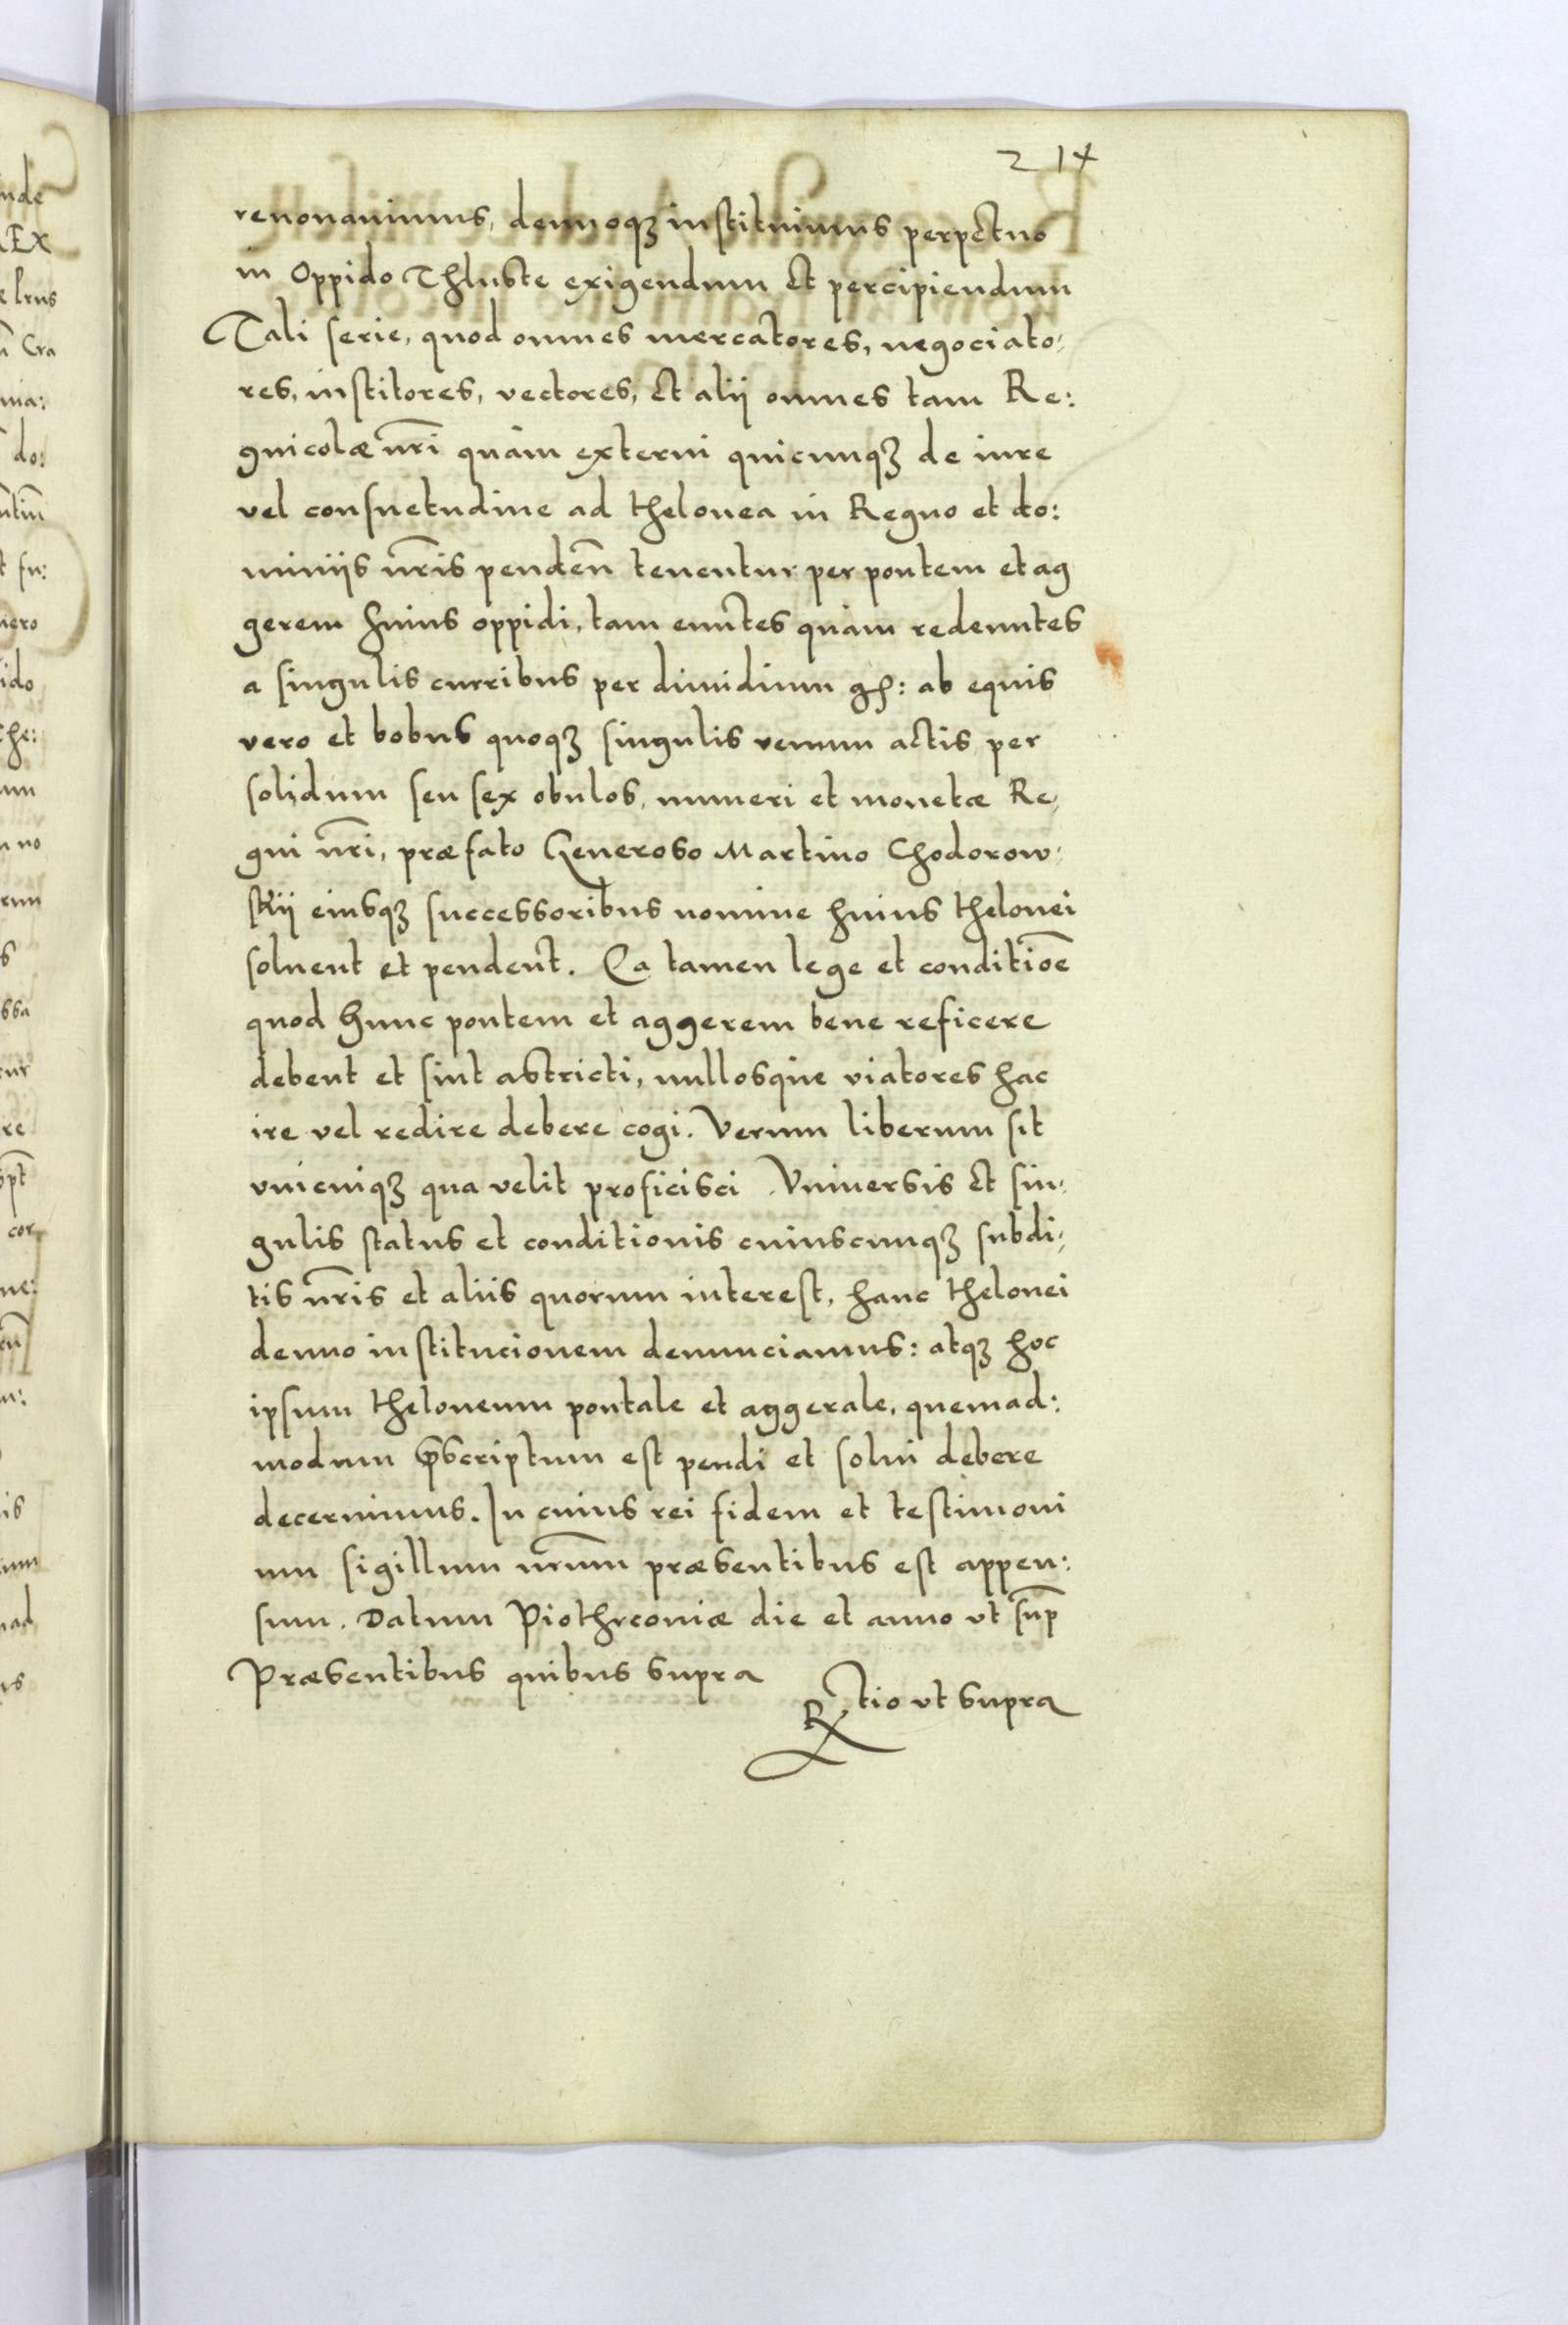 214
renouauimus, denuoqȝ instituimus perpetuo
in Oppido Thluste exigendum et percipiendum
Tali serie, quod omnes mercatores, negociato:
res, institores, vectores, et alij omnes tam Re:
gnicolæ nr̃i quàm externi quicunqȝ de iure
vel consuetudine ad thelonea in Regno et do:
minijs nr̃is penden̄ tenentur per pontem et ag
gerem huius oppidi, tam euntes quàm redeuntes
a singulis curribus per dimidium gr: ab equis
vero et bobus quoqȝ singulis venum actis per
solidum seu sex obulos, numeri et monetæ Re:
gni nr̃i, præfato Generoso Martino Chodorow:
skij eiusqȝ successoribus nomine huius thelonei
soluent et pendent̃. Ea tamen lege et conditiōe
quod hunc pontem et aggerem bene reficere
debent et sint astricti, nullosque viatores hac
ire vel redire debere cogi. Verum liberum sit
vnicuiqȝ qua velit proficisci. Vniuersis et sin:
gulis status et conditionis cuiuscunqȝ subdi:
tis nr̃is et alijs quorum interest, hanc thelonei
denuo institucionem denunciamus: atqȝ hoc
ipsum theloneum pontale et aggerale, quemad:
modum p̄scriptum est pendi et solui debere
decernimus. In cuius rei fidem et testimoni
um sigillum nr̃um præsentibus est appen:
sum. Datum Piothrconiæ die et anno vt sup̄
Præsentibus quibus supra
R̃tio vt supra